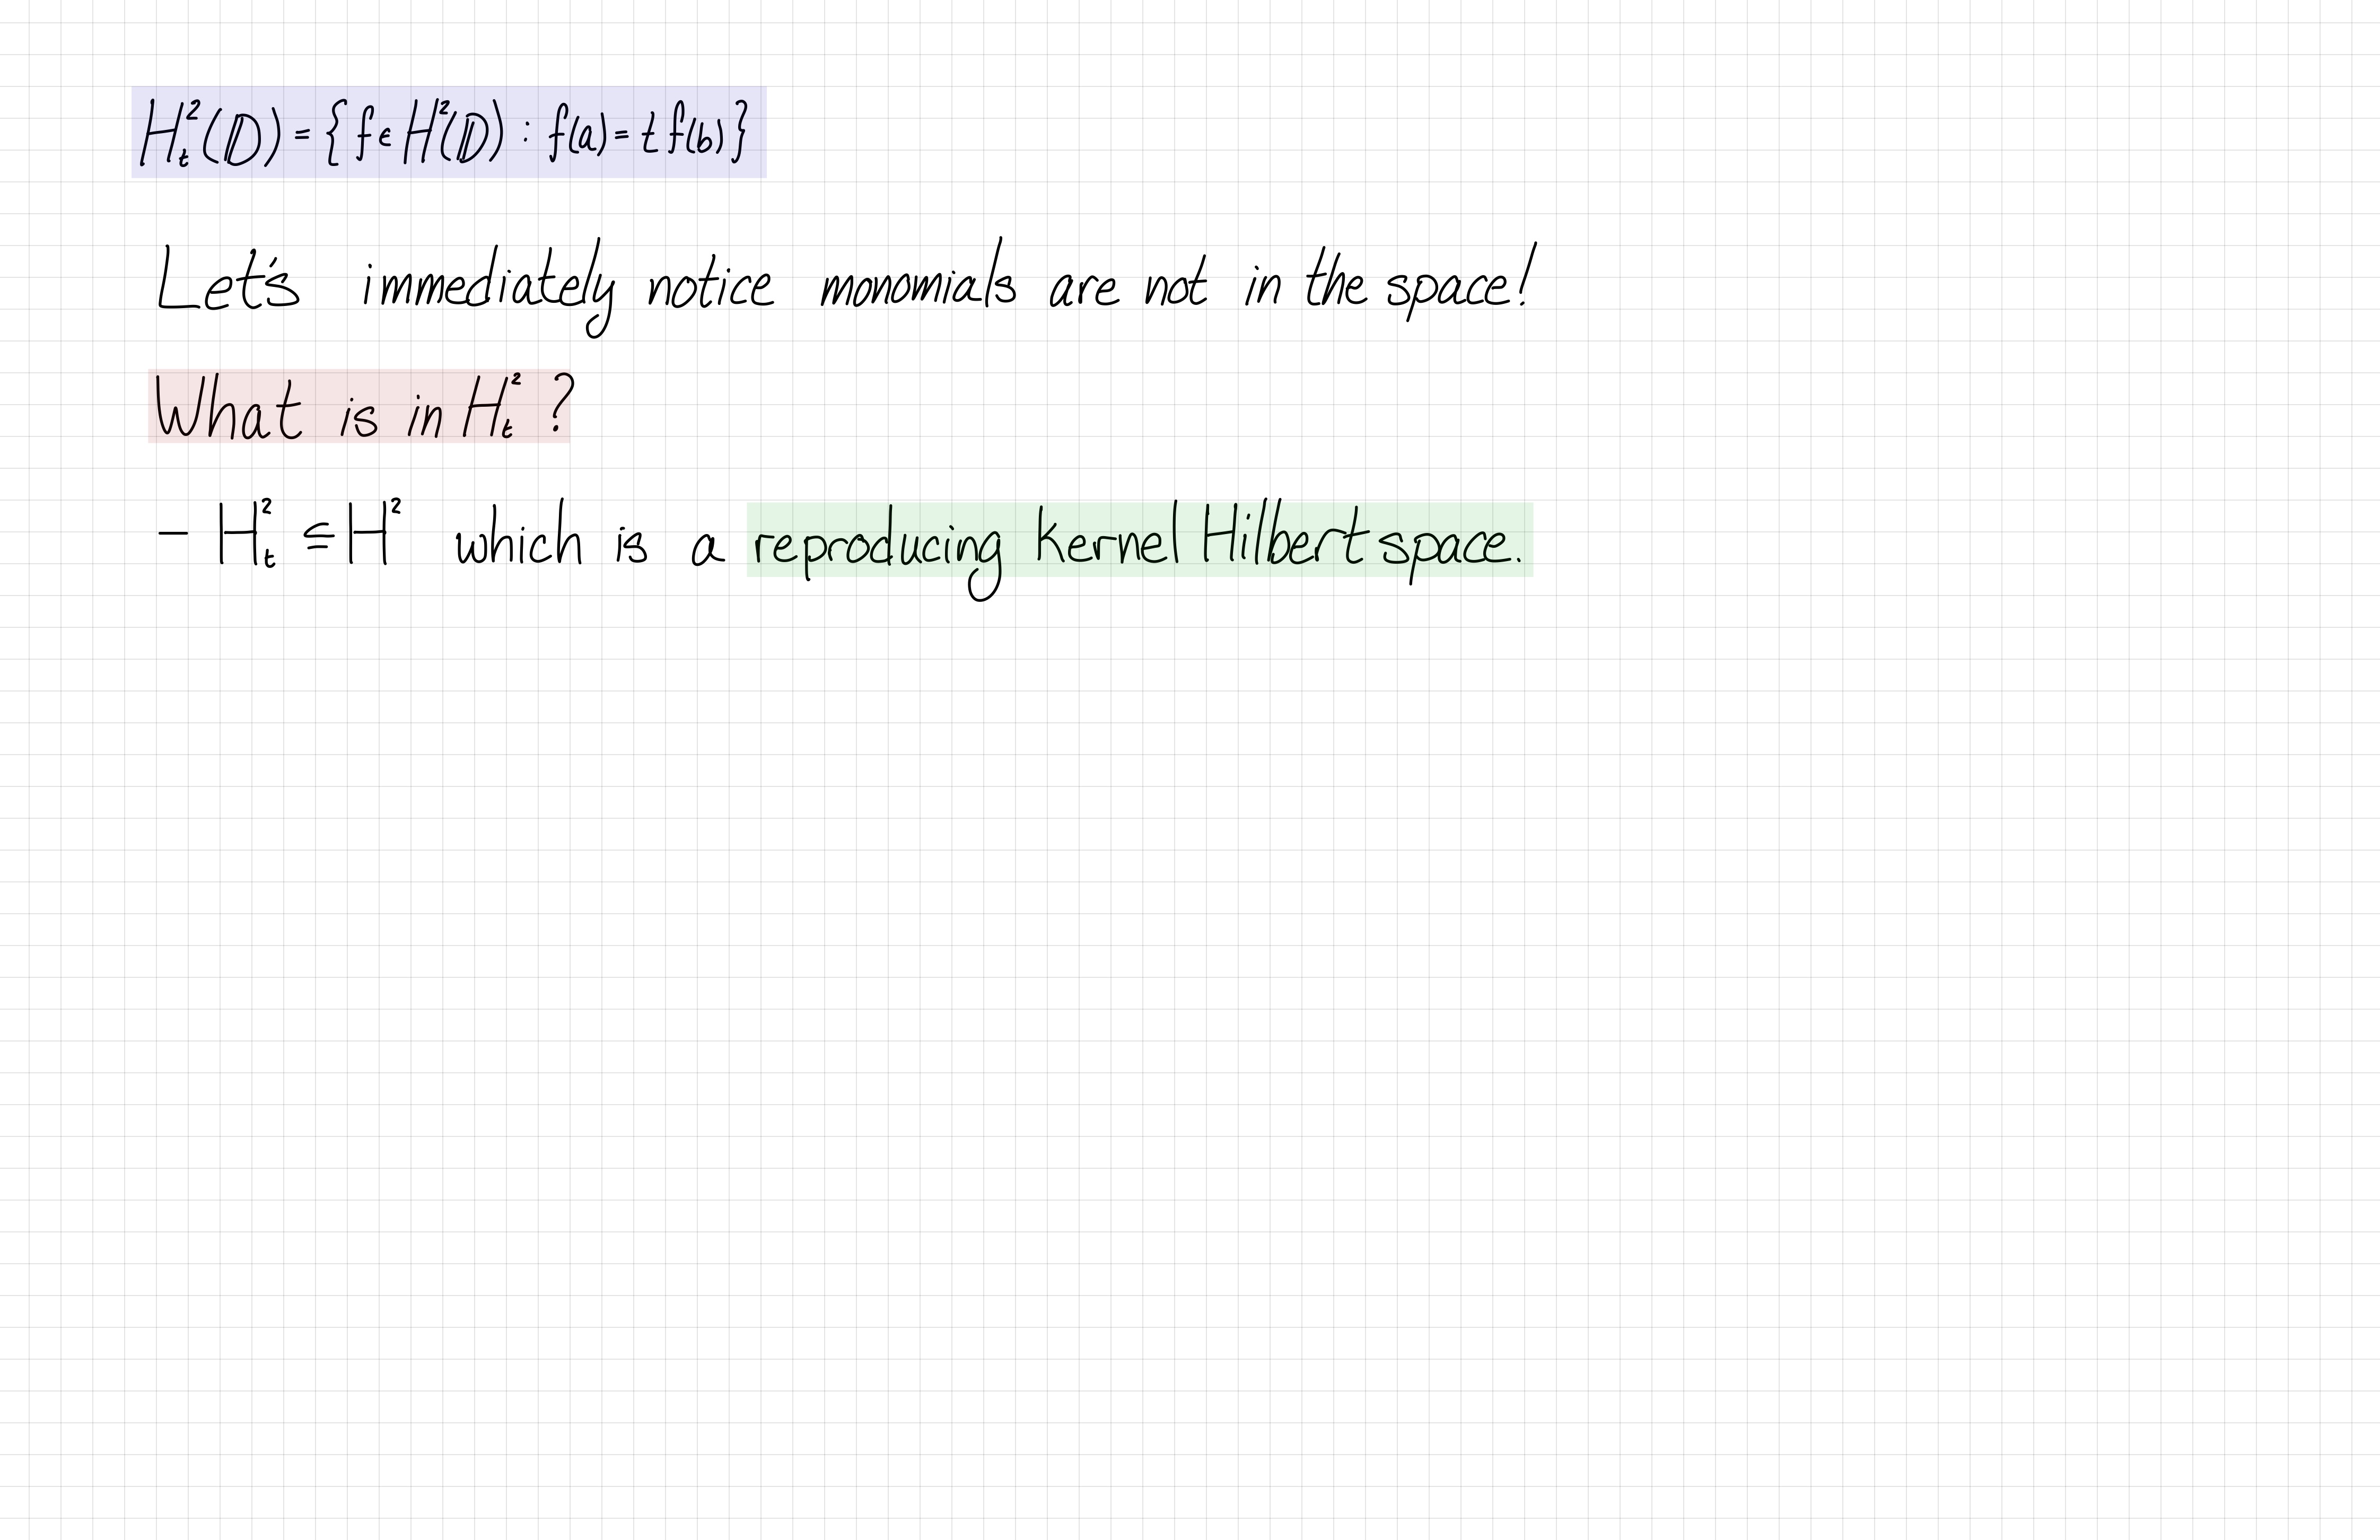 H²ₜ(𝔻) = { f ∈ H²(𝔻) : f(a) = t f(b) }
Let's immediately notice monomials are not in the space!
What is in H²ₜ ?
– H²ₜ ≦ H² which is a reproducing kernel Hilbert space.